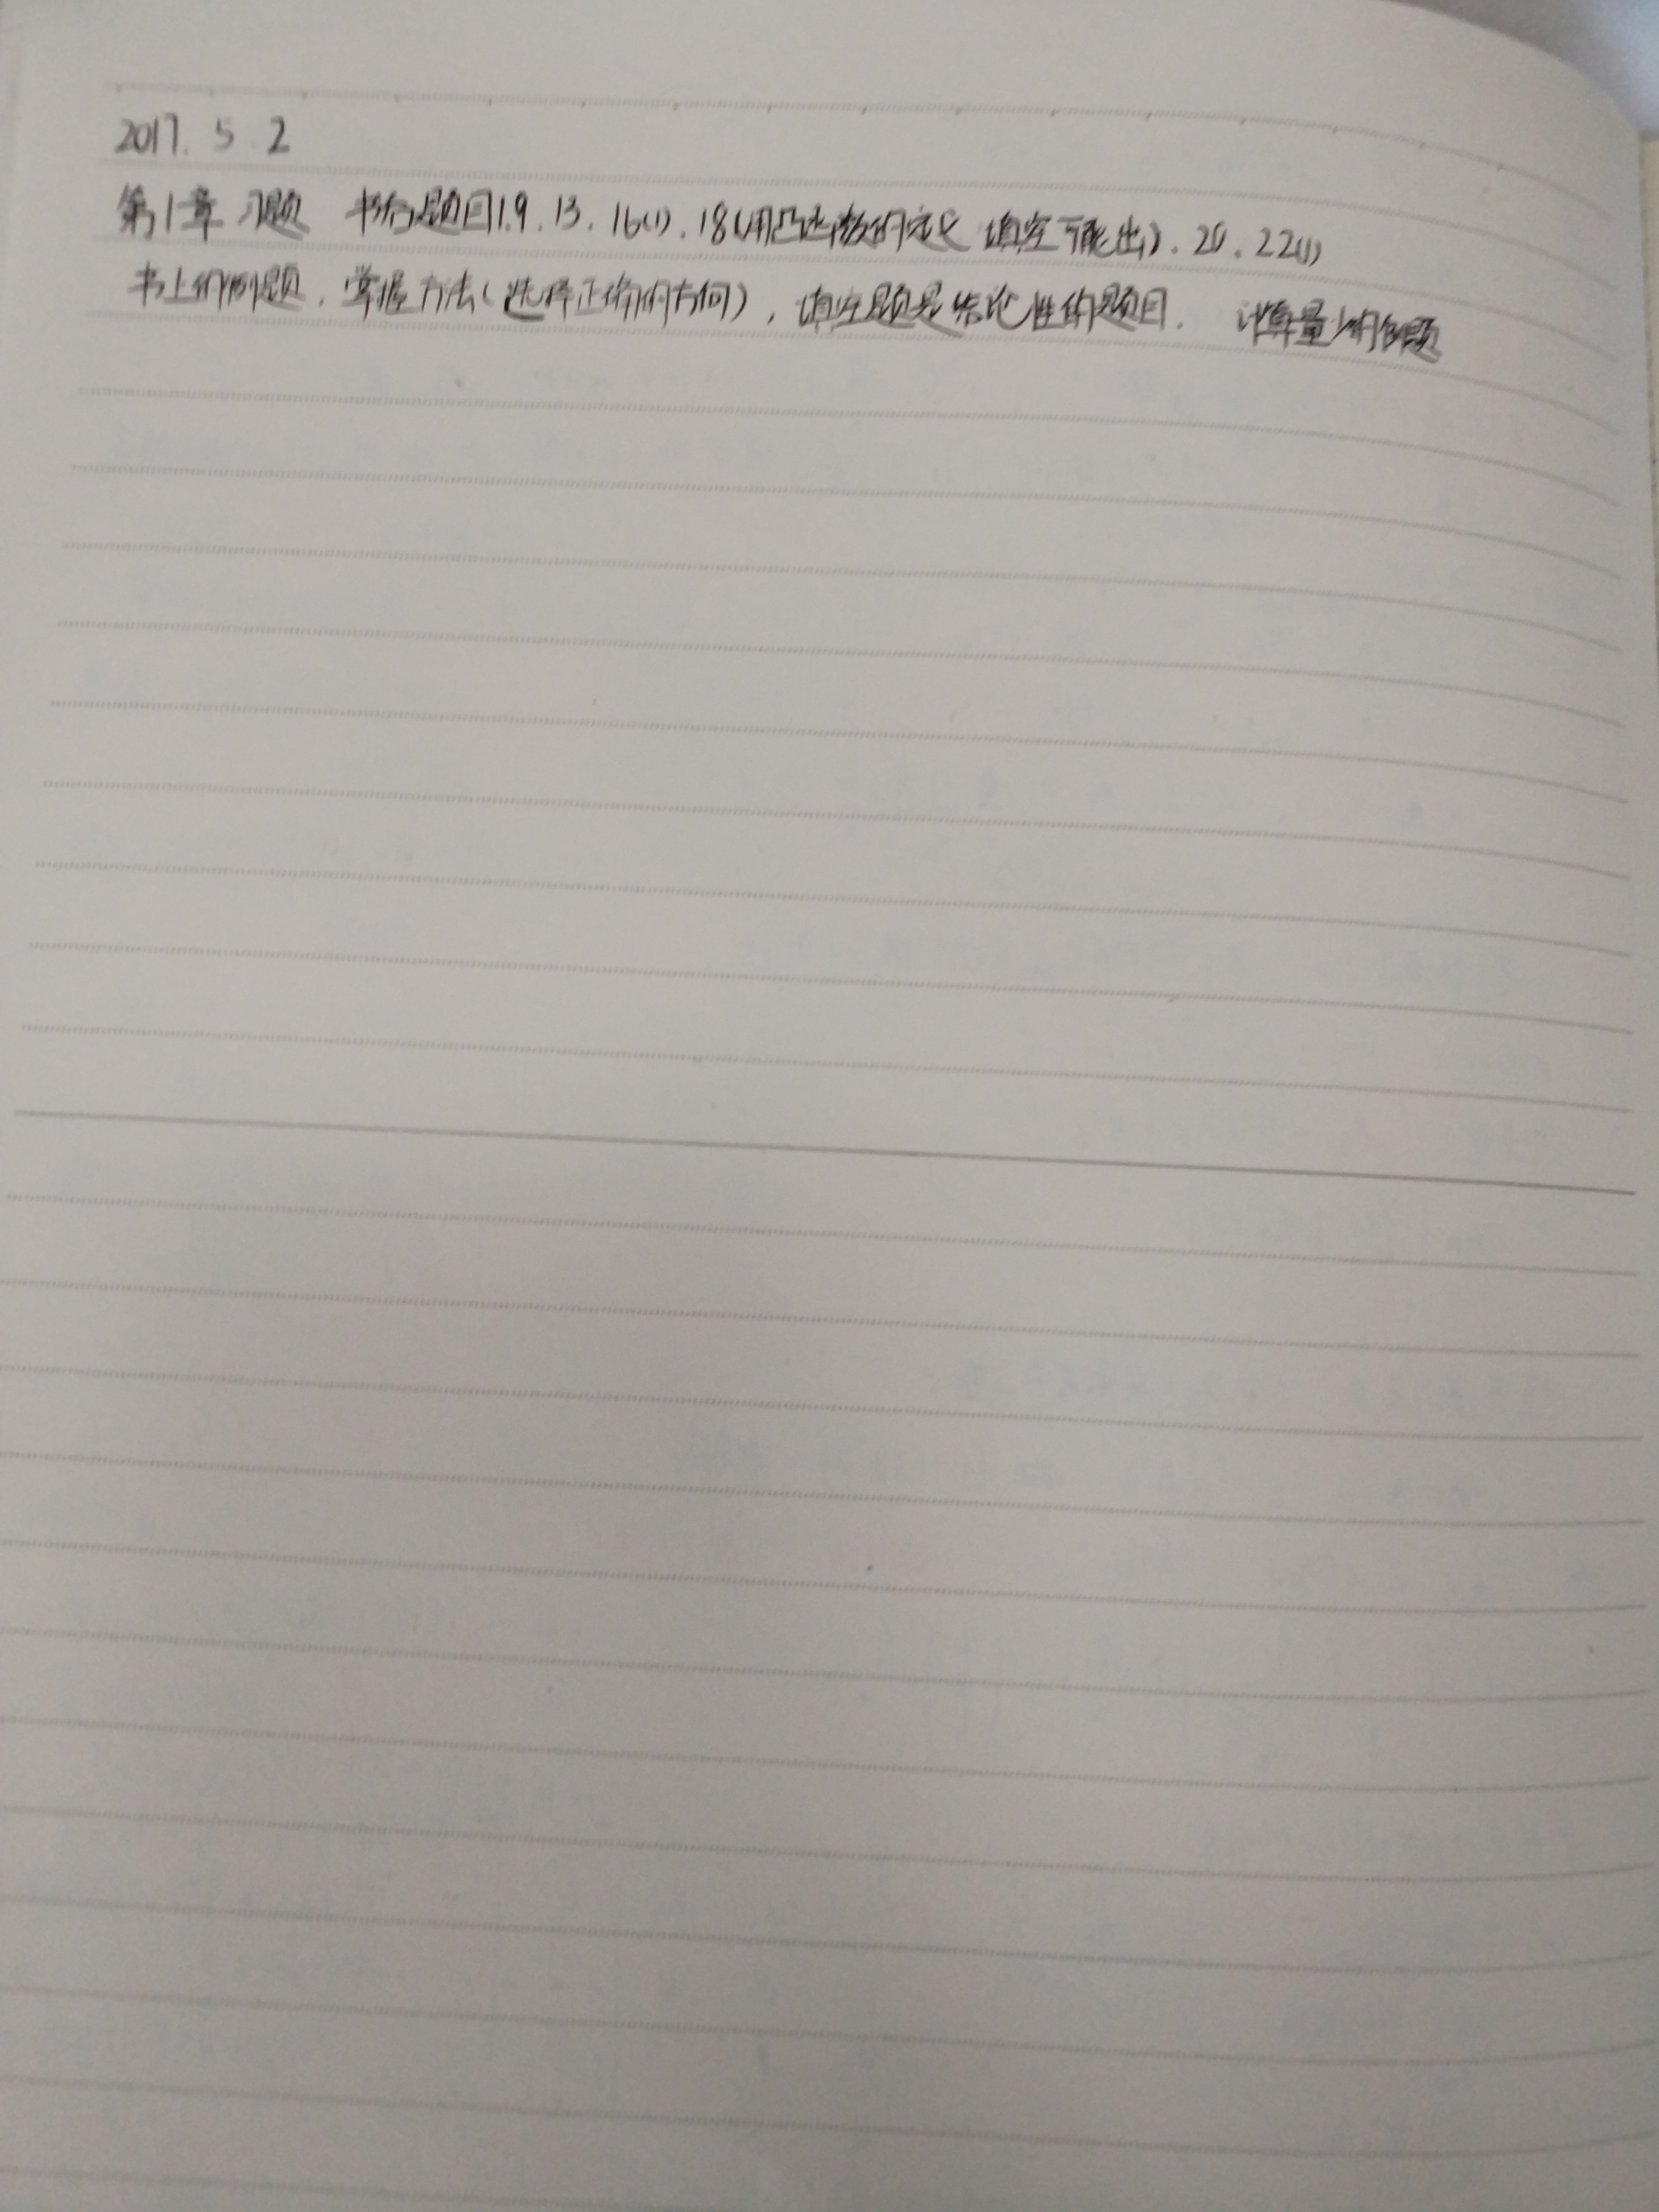 2017. 5 2
第1章 习题 书后题目1.9.13.16(1).18(用凸函数的定义 填空可能出).20.22(1)
书上的例题,掌握方法(选择正确的方向),填空题是结论性的题目. 计算量少的例题